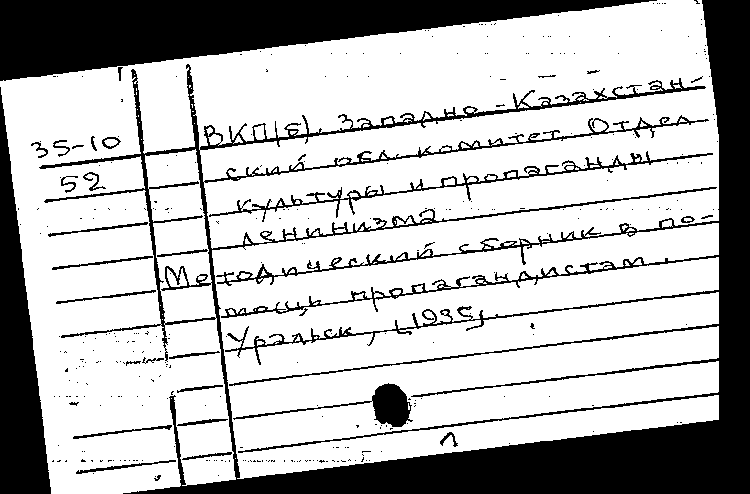 35-10
52
ВКП(б). Западно-Казахстан-
ский обл. комитет. Отдел
культуры и пропаганды
ленинизма.
Методический сборник в по-
мощь пропагандистам.
Уральск, [1935].